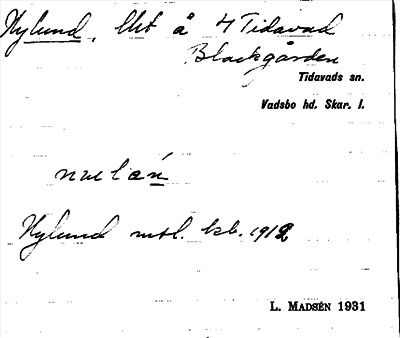 Nylund, lht å 4 Tidavad
Blackgården
Tidavads sn.
Vadsbo hd. Skar. l.
Nylund mtl. kb. 1912
L. MADSÉN 1931